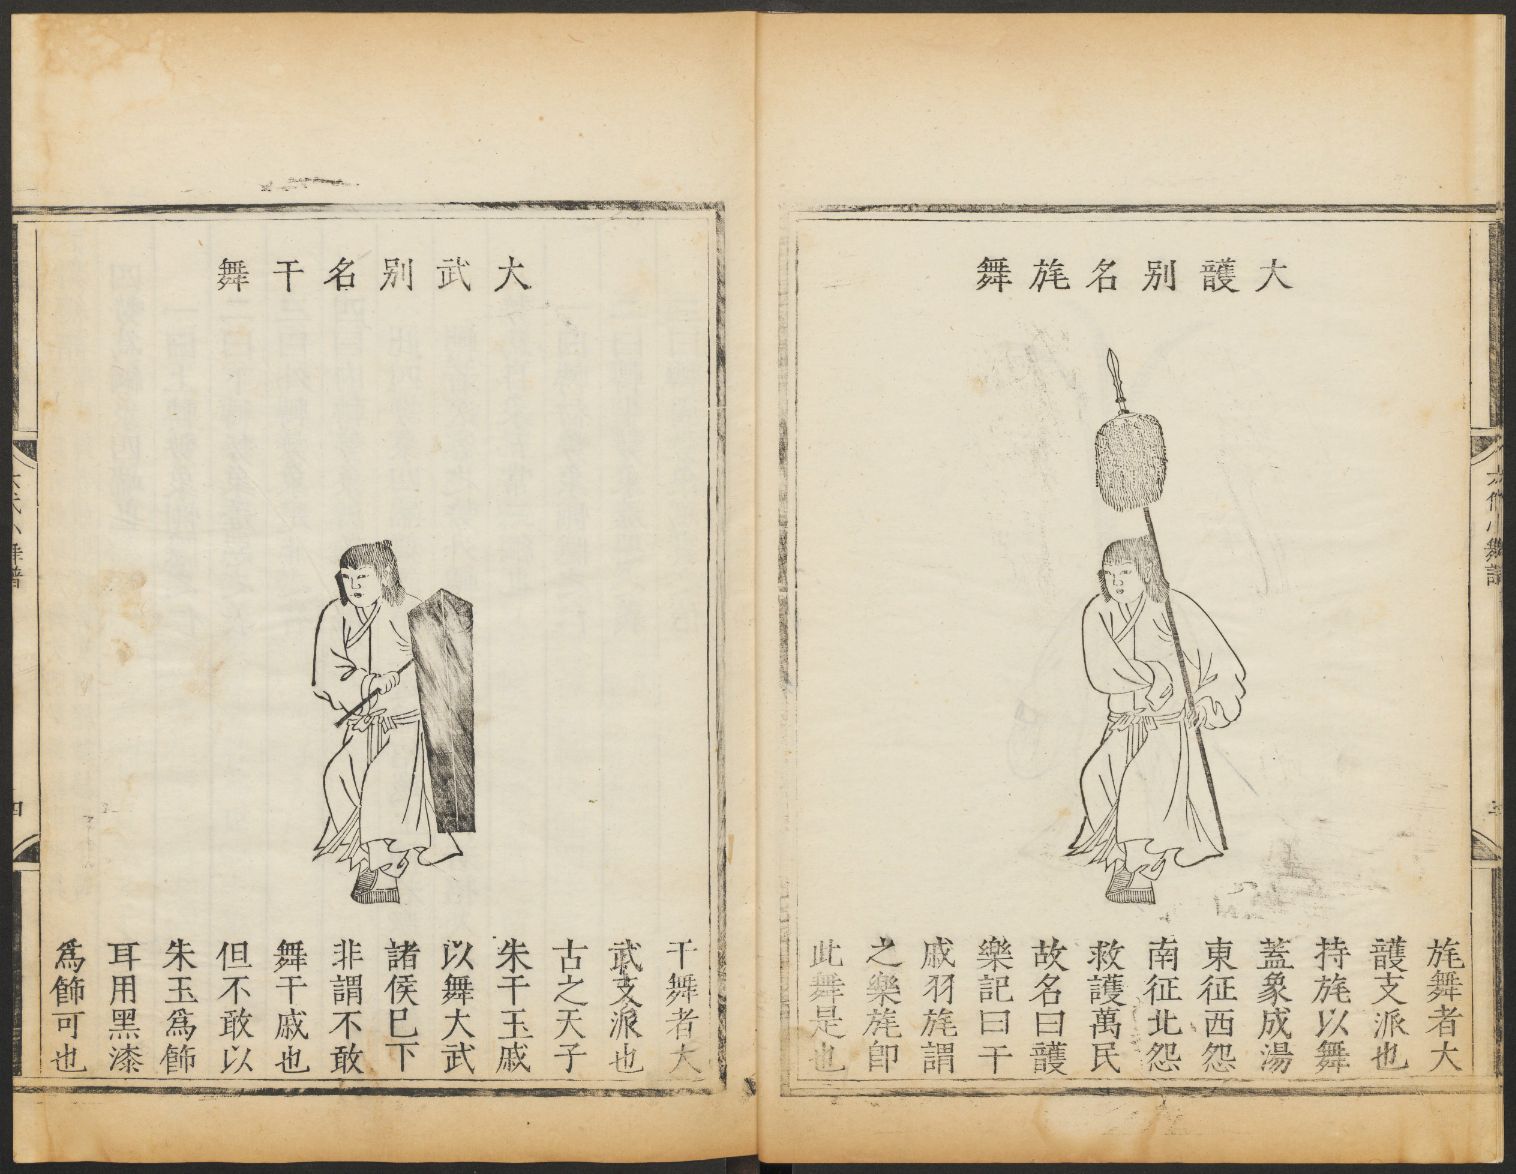 大護別名旄舞
旄舞者大
護支派也
持旄以舞
蓋象成湯
東征西怨
南征北怨
救護萬民
故名曰護
樂記曰干
戚羽旄謂
之樂旄卽
此舞是也
大武別名干舞
干舞者大
武支派也
古之天子
朱干玉戚
以舞大武
諸侯已下
非謂不敢
舞干戚也
但不敢以
朱玉爲飾
耳用黑漆
爲飾可也
四